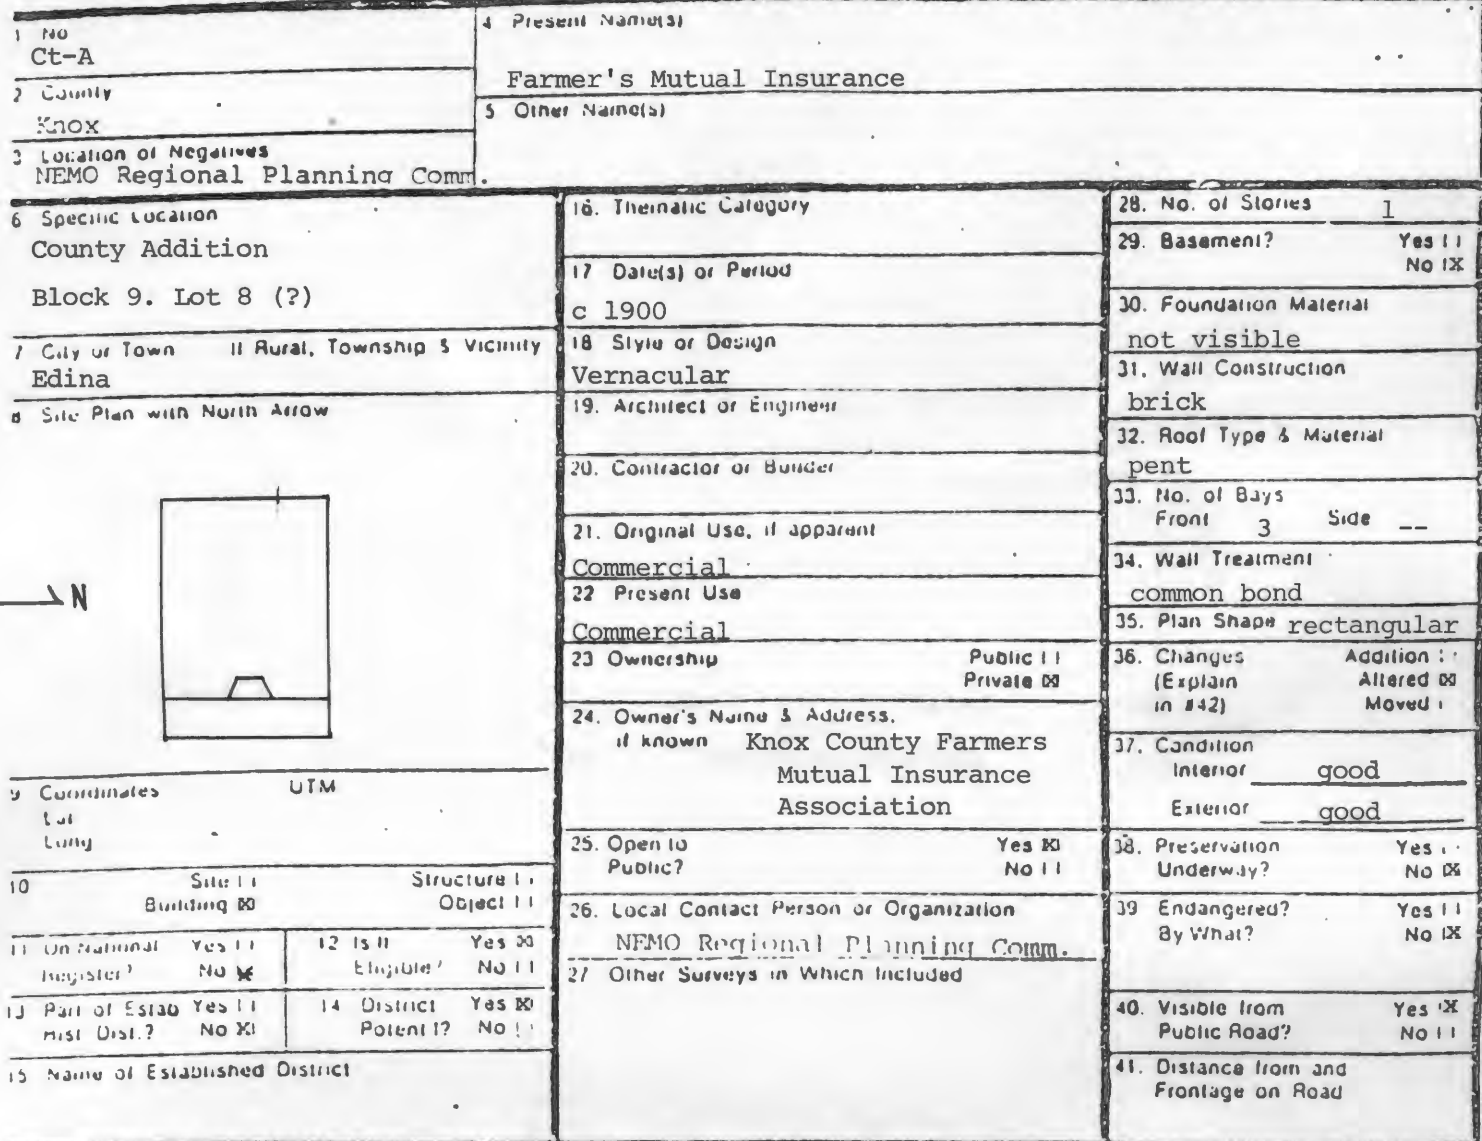 1 No
Ct-A
2 County
Knox
3 Location of Negatives
NEMO Regional Planning Comm.
4 Present Name(s)
Farmer's Mutual Insurance
5 Other Name(s)
6 Specific Location
County Addition
Block 9. Lot 8 (?)
7 City or Town If Rural, Township & Vicinity
Edina
8 Site Plan with North Arrow
N
9 Coordinates UTM
Lat
Long
10 Site [ ] Structure [ ]
Building [X] Object [ ]
11 On National Yes [ ]
Register? No [X]
12 Is It Yes [X]
Eligible? No [ ]
13 Part of Estab Yes [ ]
Hist Dist.? No [X]
14 District Yes [X]
Potent'l? No [ ]
15 Name of Established District
16. Thematic Category
17 Date(s) or Period
c 1900
18 Style or Design
Vernacular
19. Architect or Engineer
20. Contractor or Builder
21. Original Use, if apparent
Commercial
22 Present Use
Commercial
23 Ownership Public [ ]
Private [X]
24. Owner's Name & Address,
if known Knox County Farmers
Mutual Insurance
Association
25. Open to Yes [X]
Public? No [ ]
26. Local Contact Person or Organization
NEMO Regional Planning Comm.
27 Other Surveys in Which Included
28. No. of Stories 1
29. Basement? Yes [ ]
No [X]
30. Foundation Material
not visible
31. Wall Construction
brick
32. Roof Type & Material
pent
33. No. of Bays
Front 3 Side --
34. Wall Treatment
common bond
35. Plan Shape rectangular
36. Changes Addition [ ]
(Explain Altered [X]
in #42) Moved [ ]
37. Condition
Interior good
Exterior good
38. Preservation Yes [ ]
Underway? No [X]
39 Endangered? Yes [ ]
By What? No [X]
40. Visible from Yes [X]
Public Road? No [ ]
41. Distance from and
Frontage on Road